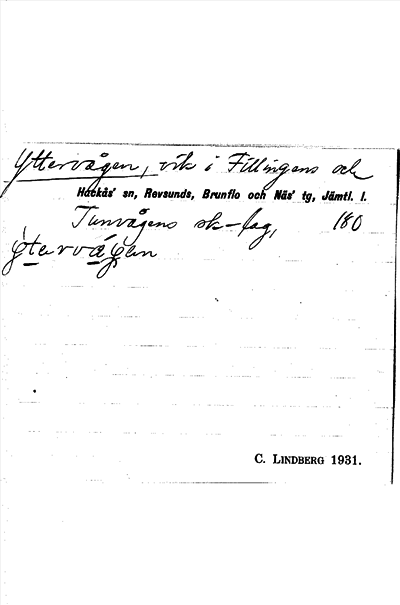 Yttervågen, vik i Fillingens och
Hackås' sn, Revsunds, Brunflo och Näs' tg, Jämtl. l.
Tunvågens sk-lag, 180
C. LINDBERG 1931.